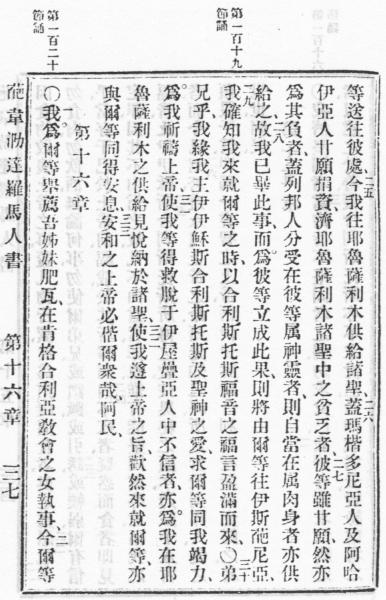 第一百十九
節誦
第一百二十
節誦
等送往彼處、二五今我往耶魯薩利木供給諸聖、二六蓋瑪楷多尼亞人及阿哈
伊亞人甘願捐資濟耶魯薩利木諸聖中之貧乏者、二七彼等雖甘願然亦
為其負者蓋列邦人分受在彼等屬神靈者則自當在属肉身者亦供
給之、二八故我已畢此事、而為彼等立成此果則將由爾等往伊斯葩尼亞、
二九我確知我來就爾等之時以合利斯托斯福音之福言盈滿而來、〇三十弟
兄乎我緣我主伊伊穌斯合利斯托斯及聖神之愛求爾等同我竭力、
為我祈禱上帝、三一使我等得救脫于伊屋疊亞人中不信者、亦為我在耶
魯薩利木之供給見悅納於諸聖、三二使我遵上帝之旨歡然來就爾等、亦
與爾等同得安息、三三安和之上帝必偕爾衆哉、阿民、
第十六章
〇我為爾等舉薦吾姊妹肥瓦、在肯格合利亞敎會之女執事、二今爾等
葩韋泐達羅馬人書
第十六章
三七